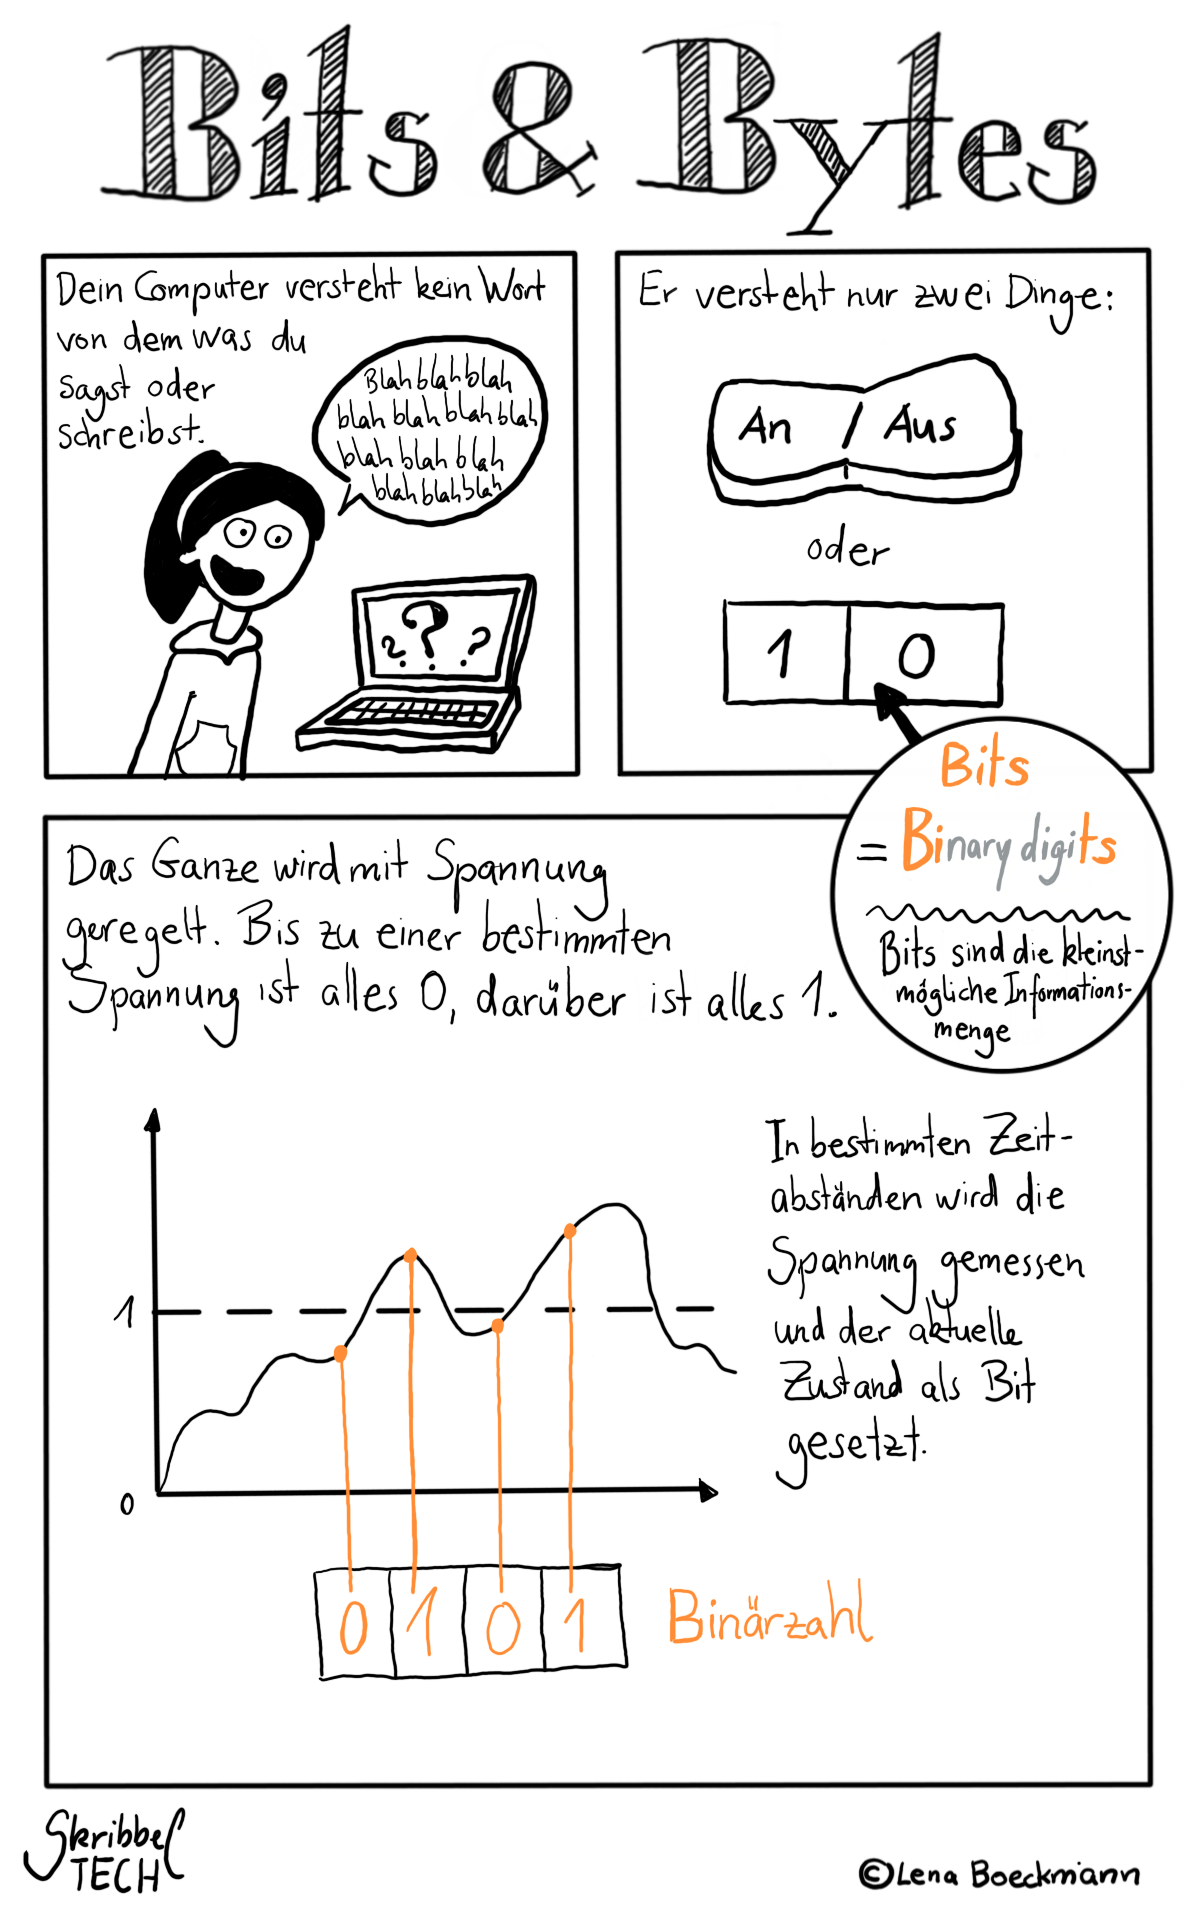 Bits & Bytes
Dein Computer versteht kein Wort
von dem was du
sagst oder
schreibst.
Blahblahblah
blah blah blah blah
blah blah blah
blahblahblah
? ? ?
Er versteht nur zwei Dinge:
An / Aus
oder
1 0
Bits
= Binary digits
Bits sind die kleinst-
mögliche Informations-
menge
Das Ganze wird mit Spannung
geregelt. Bis zu einer bestimmten
Spannung ist alles 0, darüber ist alles 1.
1
0
In bestimmten Zeit-
abständen wird die
Spannung gemessen
und der aktuelle
Zustand als Bit
gesetzt.
0 1 0 1
Binärzahl
Skribbel
TECH
© Lena Boeckmann